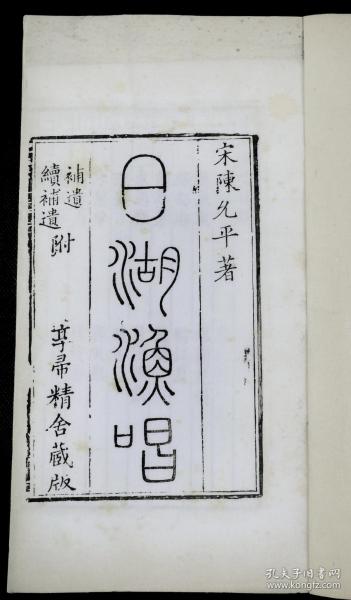 宋陳允平著
日湖漁唱
補遺
續補遺附
享帚精舍藏版
孔夫子旧书网